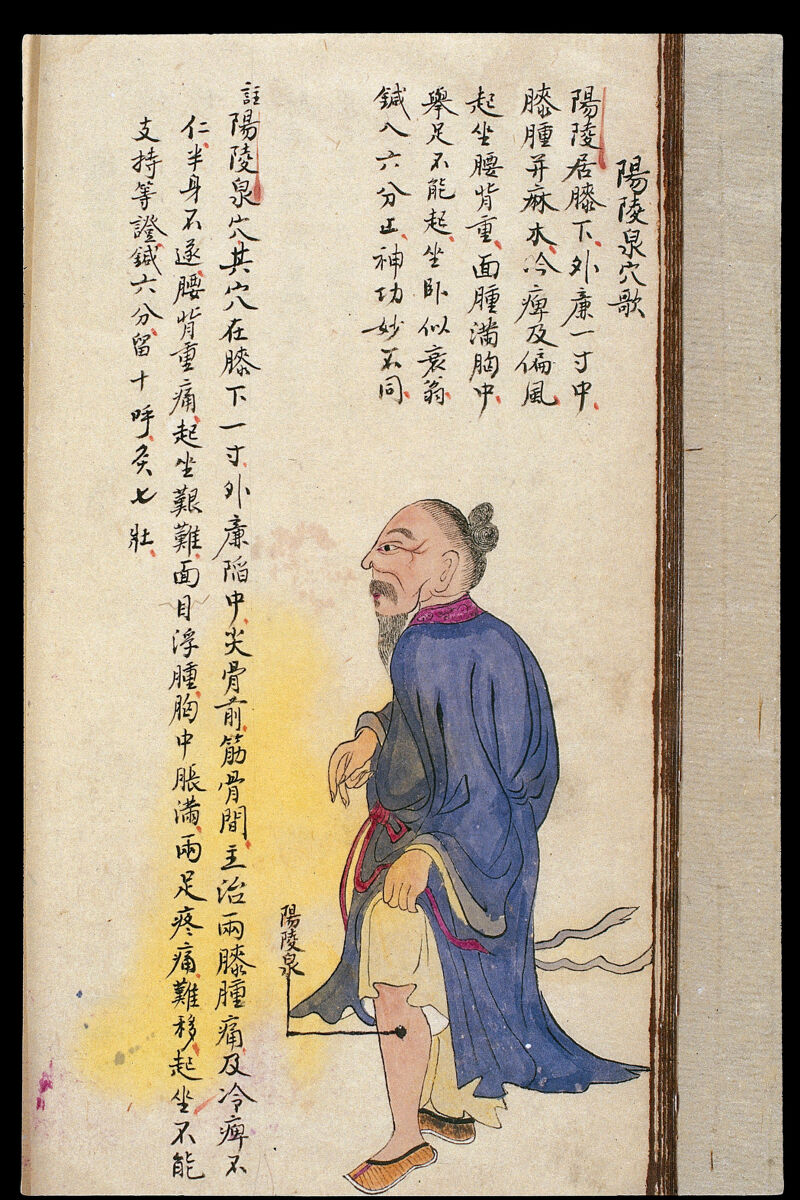 陽陵泉穴歌
陽陵居膝下外廉一寸中
膝腫并麻木冷痺及偏風
起坐腰背重面腫滿胸中
舉足不能起坐卧似衰翁
鍼入六分止神功妙不同
註陽陵泉穴其穴在膝下一寸外廉陷中尖骨前筋骨間主治兩膝腫痛及冷痺不
仁半身不遂腰背重痛起坐艱難面目浮腫胸中脹滿兩足疼痛難移起坐不能
支持等證鍼六分留十呼灸七壯
陽陵泉